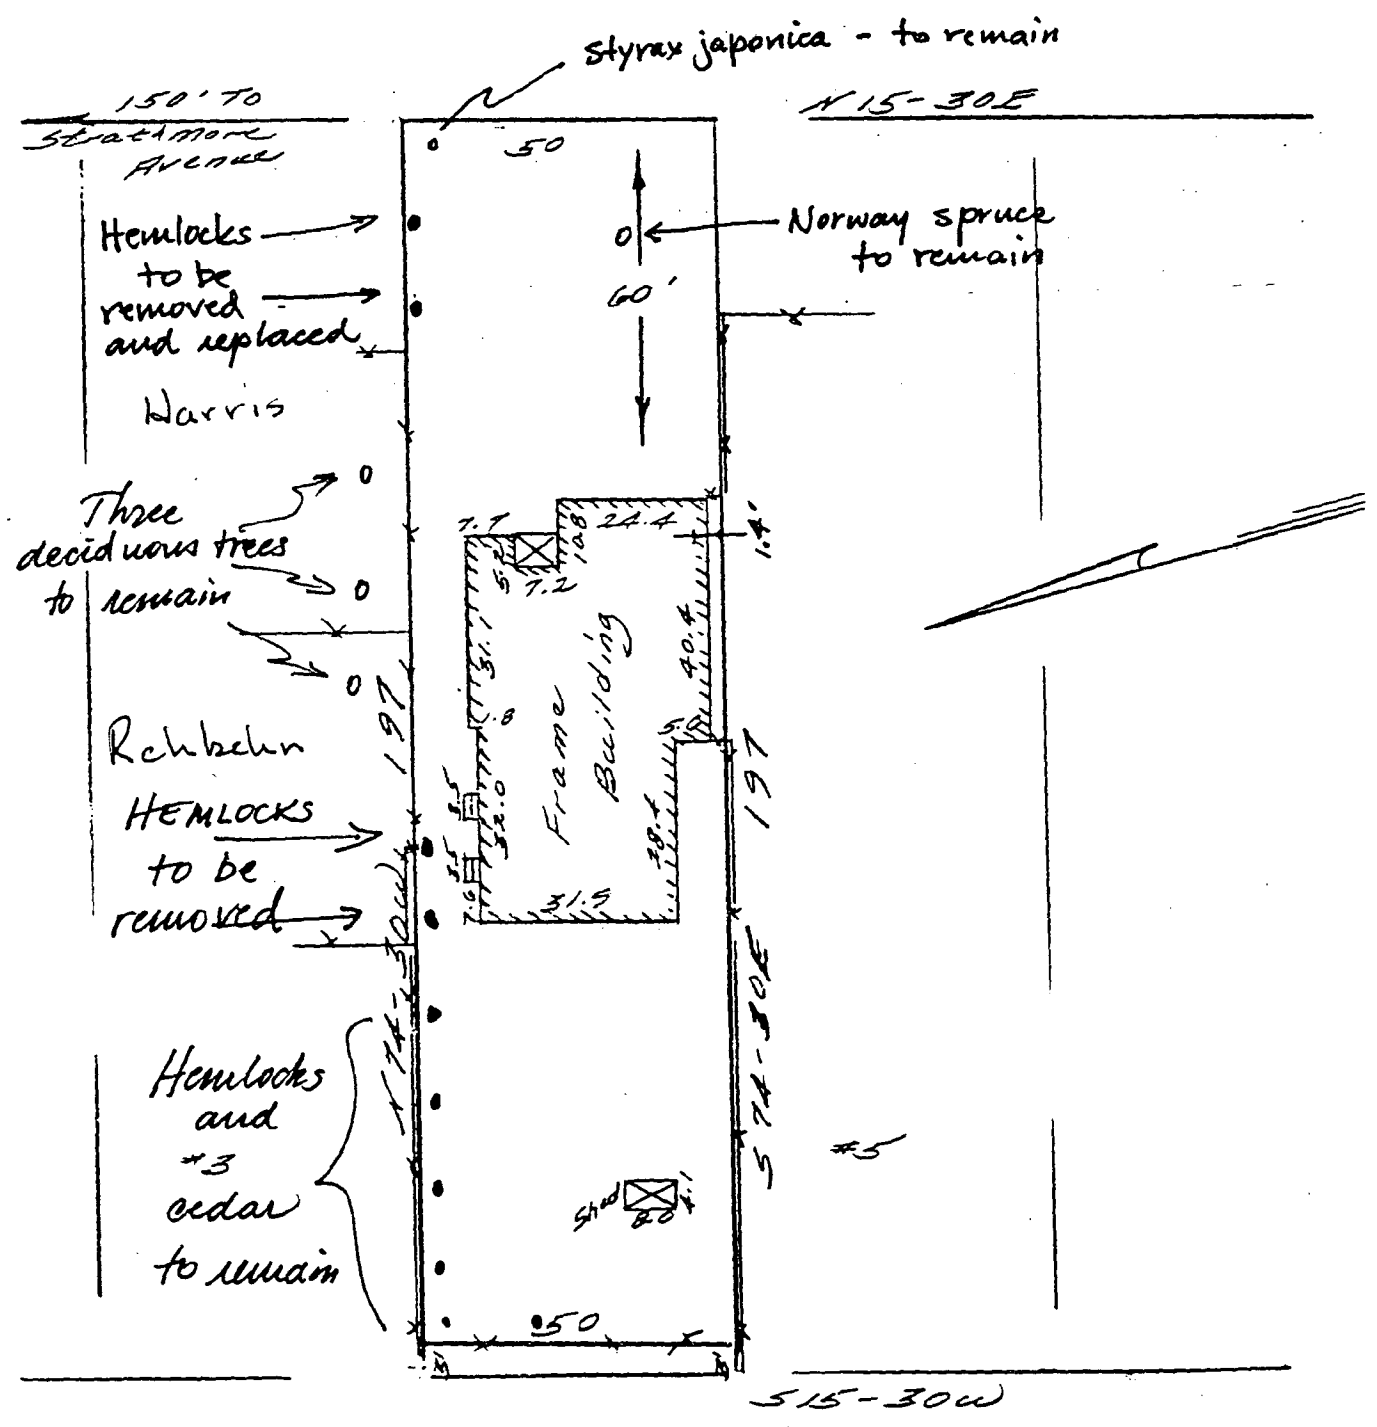 Styrax japonica - to remain
150' To
Strathmore
Avenue
N 15-30E
50
Hemlocks
to be
removed
and replaced
Norway spruce
to remain
60'
Harris
Three
deciduous trees
to remain
7.7
5.2
7.2
10.8
24.4
1.4'
31.7
.8
40.4
5.0
Frame
Building
197
197
Rehbehn
HEMLOCKS
to be
removed
3.5
3.5
32.0
7.6
28.4
31.5
N 74-30W
S 74-30E
Hemlocks
and
#3
cedar
to remain
#5
Shed
8.0
4.1
50
S 15-30W